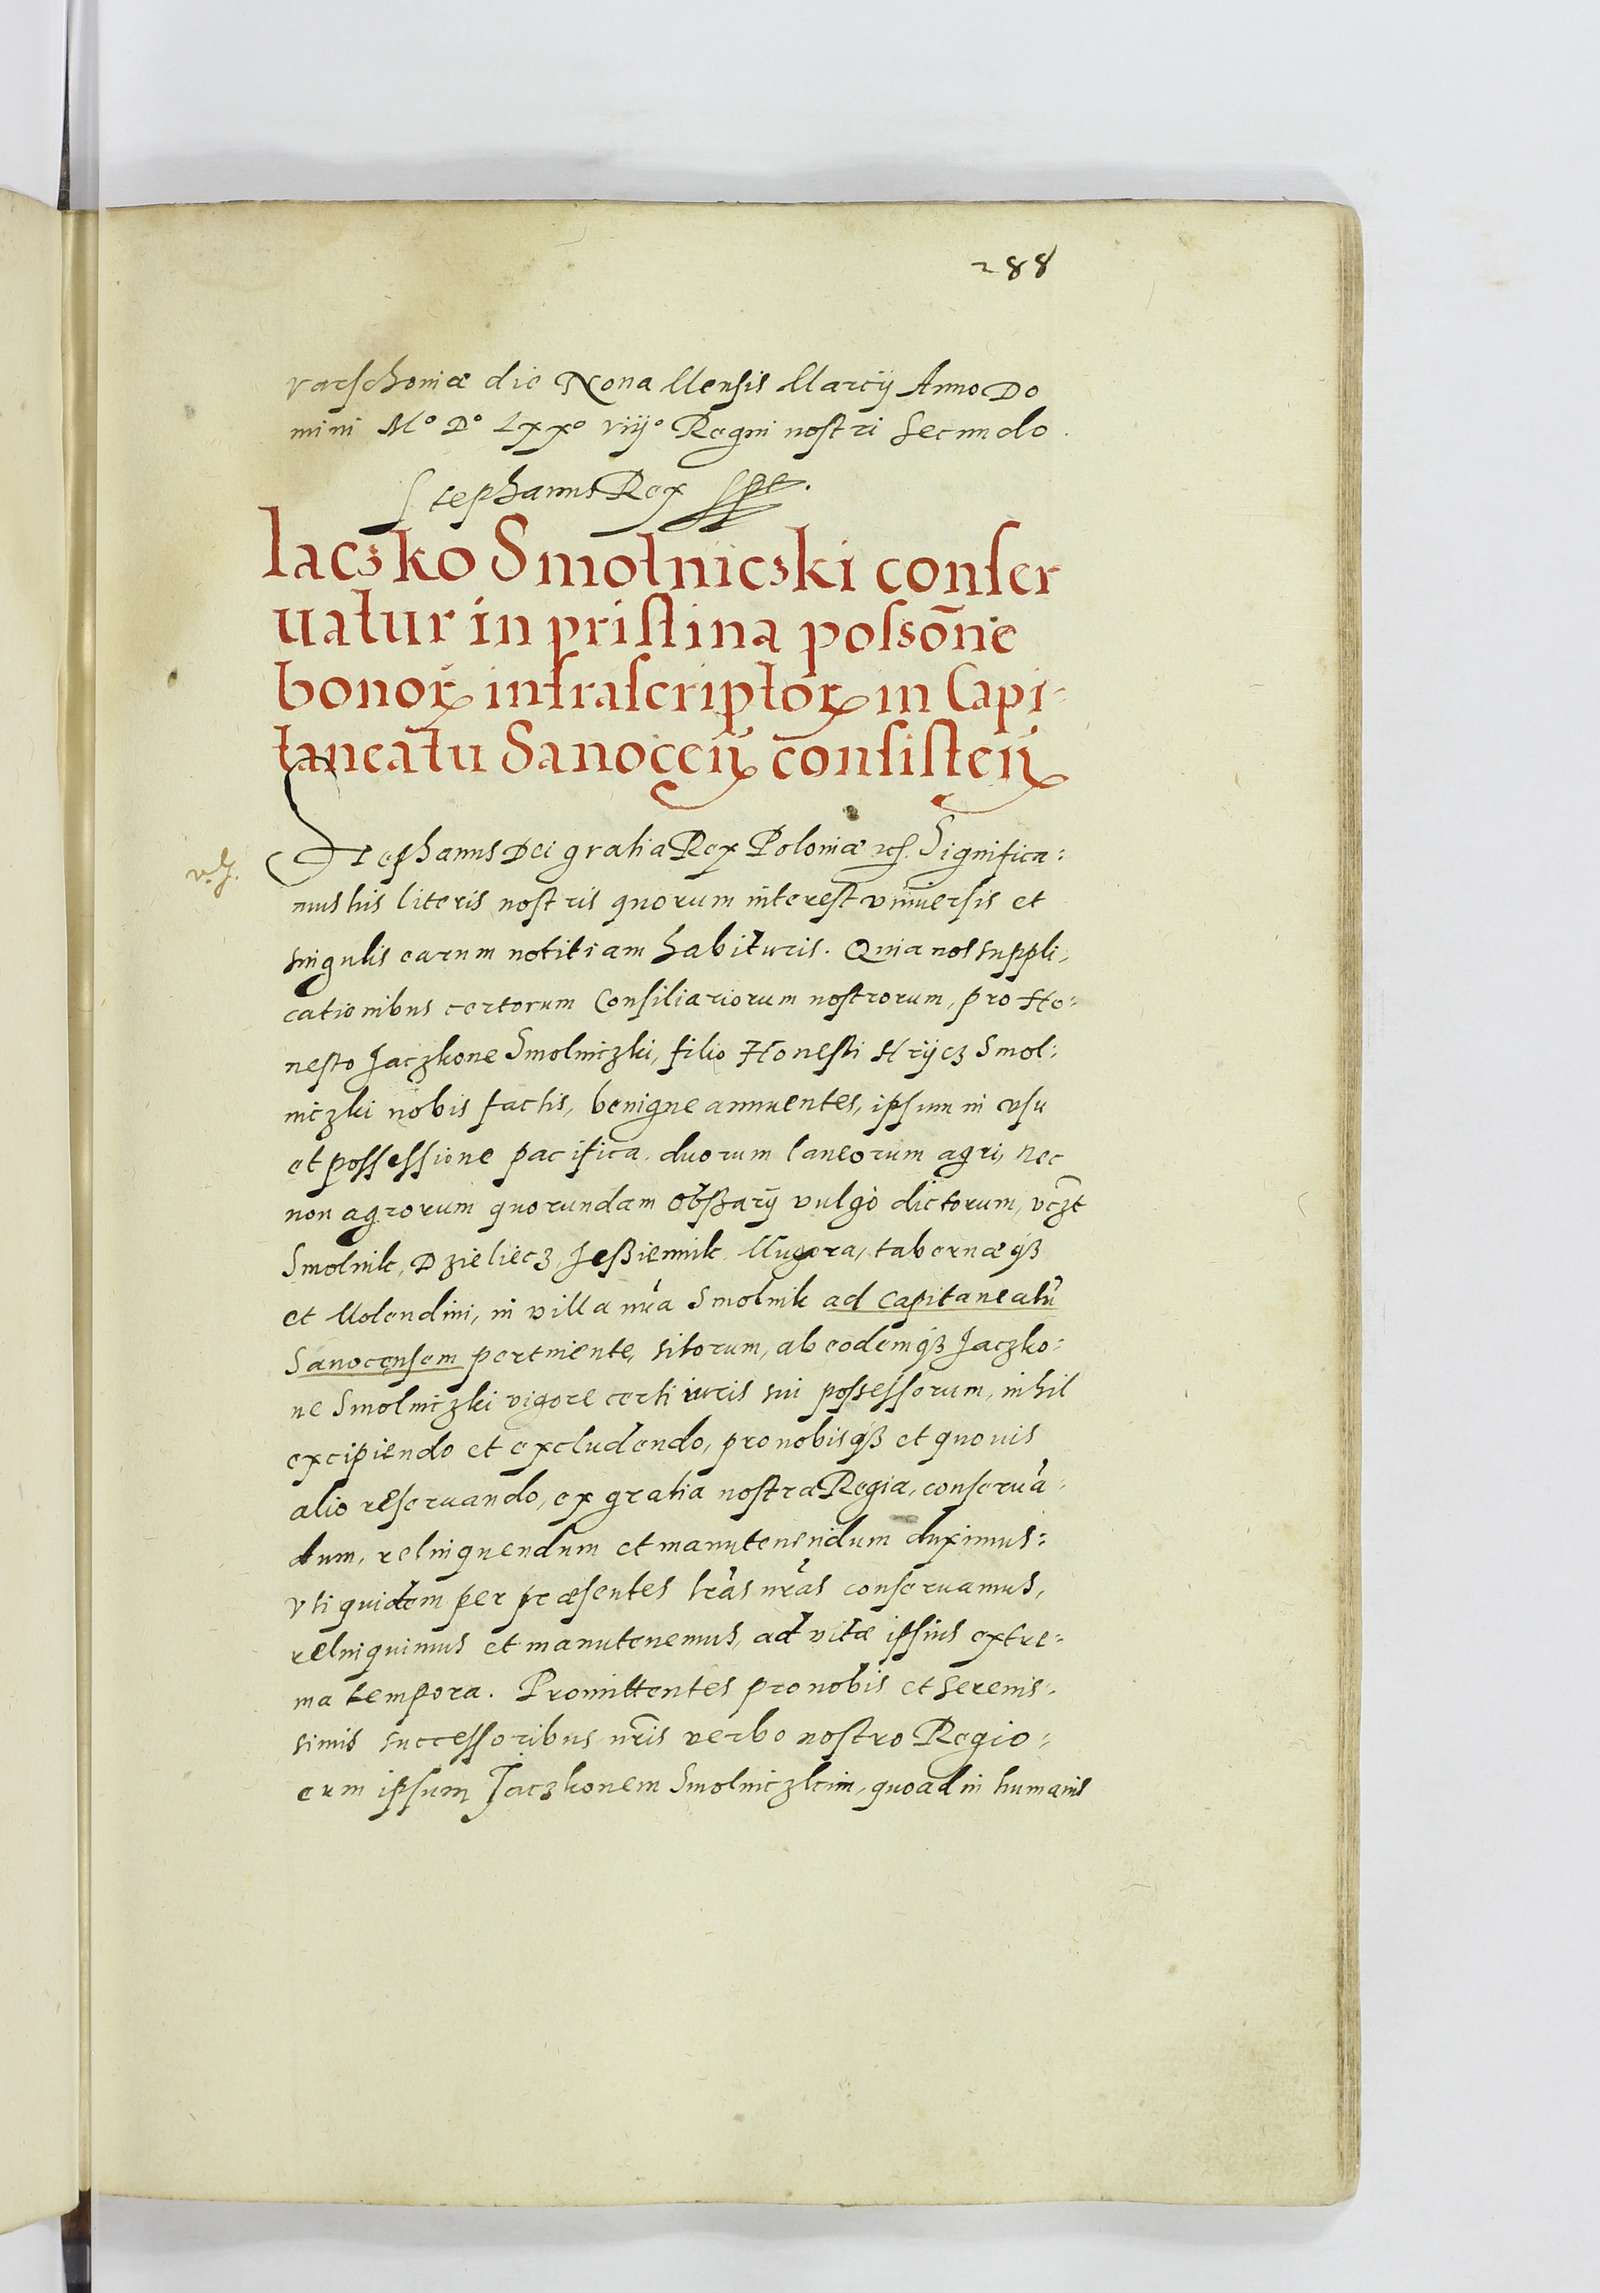 288
varschoniæ die Nona Mensis Marcij Anno Do
mini M° D° Lxx° viij° Regni nostri Secundo.
Stephanus Rex
Iaczko Smolniczki conser
uatur in pristina possōne
bonoꝝ infrascriptoꝝ in Capi-
taneatu Sanoceń consisteń
Stephanus Dei gratia Rex Poloniæ Significa:
mus his literis nostris quorum interest vniuersis et
singulis earum notitiam habituris. Quia nos suppli,
cationibus certorum Consiliariorum nostrorum, pro Ho:
nesto Jaczkone Smolniczki, filio Honesti Hrijcz Smol:
niczki nobis factis, benigne annuentes, ipsum in vsu
et possessione pacifica duorum laneorum agri, nec
non agrorum quorundam Obßarÿ vulgo dictorum, vczt
Smolnik, Dzieliecz, Jeßiennik Mugora, tabernæ qꝫ
et Molendini, in villa nrā Smolnik ad Capitaneatū
Sanocensem pertinente, sitorum, ab eodemqꝫ Jaczko:
ne Smolniczki vigore certi iuris sui possessorum, nihil
excipiendo et excludendo, pro nobisqꝫ et quouis
alio reseruando, ex gratia nostra Regia, conserua-
dum, relinquendum et manutenendum duximus:
vti quidem per præsentes lrās nrās conseruamus,
relinquimus et manutenemus, ad vitæ ipsius extre:
ma tempora. Promittentes pro nobis et Serenis-
simis successoribus nrīs verbo nostro Regio:
eum ipsum Jaczkonem Smolniczkim, quoad in humanis